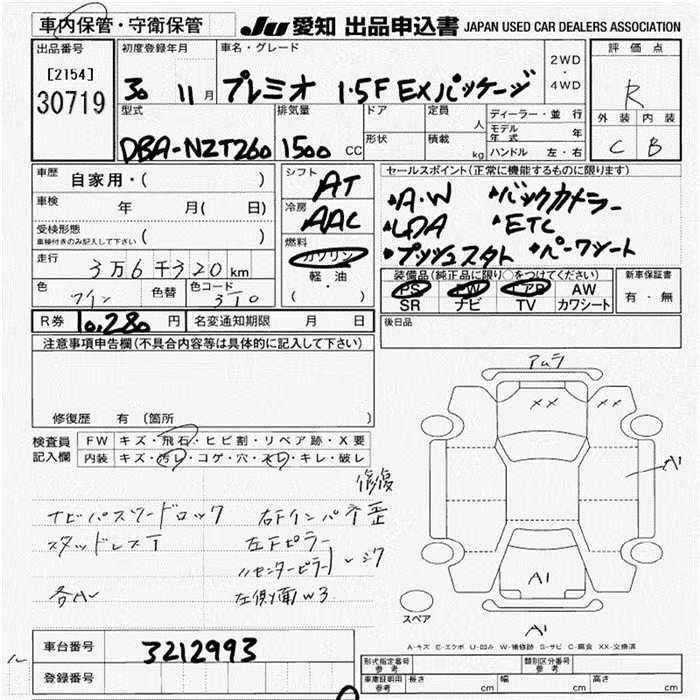 車内保管・守衛保管 JU 愛知 出品申込書 JAPAN USED CAR DEALERS ASSOCIATION
出品番号 初度登録年月 車名・グレード 2WD・4WD 評価点
[2154] 30719 30 11月 プレミオ 1.5F EXパッケージ R
型式 排気量 ドア 定員 人 ディーラー・並行 外装 内装
DBA-NZT260 1500 CC 形状 積載 kg モデル年式 年 C B
ハンドル 左・右
車歴 自家用・( ) シフト AT セールスポイント(正常に機能するものに限ります)
車検 年 月( 日) 冷房 AAC •A・W •バックカメラー
受検形態 ( ) •LDA •ETC
車検付きのみ記入して下さい 燃料 ガソリン •プッシュスタト •パーワシート
走行 3万6千320km 軽・油 装備品(純正品に限り○をつけてください) 新車保証書
色 ワイン 色替 色コード 3T0 ( ) PS PW エアB AW 有・無
SR ナビ TV カワシート
R券 10,280円 名変通知期限 月 日 後日品
注意事項申告欄(不具合内容等は具体的に記入して下さい)
アムラ
XX XX
修復歴 有(箇所
検査員 FW キズ・飛石・ヒビ割・リペア跡・X要
記入欄 内装 キズ・汚レ・コゲ・穴・スレ・キレ・破レ
A1
修復
ナビパスワードロック 右Fインパネ歪
スタッドレスT 左Fピラー
〃センターピラー
A1
左側面W3
スペア
A1
A-キズ E-エクボ U-凹み W-補修跡 S-サビ C-腐食 XX-交換済
車台番号 3212993
登録番号
型式指定番号 参考 類別区分番号 参考
車庫証明用 参考 長さ cm 幅 cm 高さ cm